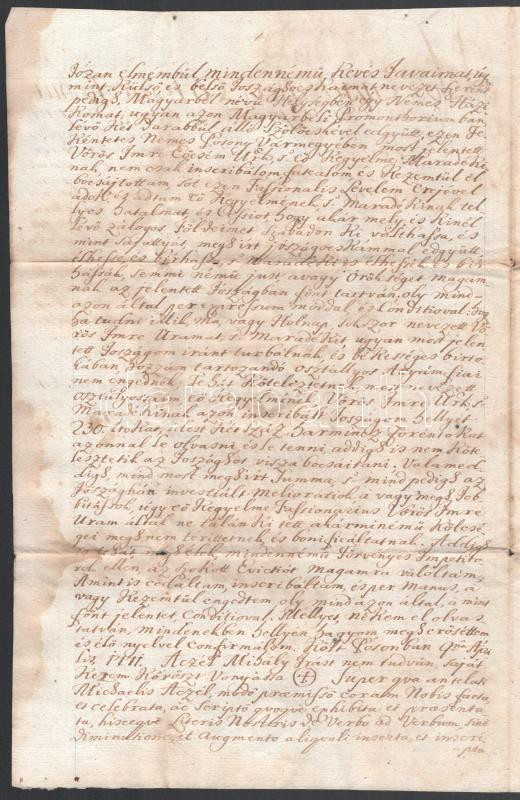 Józan elmémbül mindennémü Kevés Javaimat, úgy
mint Külsö, és belsö Joszágocskáimat nevezet szerént
pedig, Magyarbél nevü Helységben egy Nemes Házi
Helyemet, ugyan azon Magyarbéli Promontoriumban
lévö Két Darabbul álló Szölöcskével edgyütt, ezen Te-
kéntetes Nemes Posony Vármegyében most jelentett
Vörös Imre Eöcsém Urk. s. eö Kegyelme Maradéki-
nak, nem csak inscribálom, fateálom és Kezemtül el
bocsájtottam, söt ezen Fassionalis Levelem Erejével
adok, és adtam eö Kegyelmének, s. Maradékinak tel-
lyes hatalmat, és Actiot hogy akár mely, és Kinél
lévö zálogos Földeimet szabadon Ki válthassa, és
mint sajáttyát, megh írt Joszágocskámmal edgyütt
élhesse, és birhassa, s. maradéki is élhessék, és bir-
hassák, semmi némü just, avagy Örökséget magam-
nak az jelentett Joszágban fönn tartván, oly mind-
azon által per expressum móddal, és Conditioval: hog
ha tudni illik, ma, vagy Holnap, sokszor nevezett Vö-
rös Imre Uramat, s. Maradékit ugyan most jelen-
tett Joszágom iránt turbálnák, és békességes birto-
kában, hozzám tartozandó osztállyos Atyámfiai
nem engednék, Tehát Köteleztetnek meg nevezett
osztályossaim, eö Kegyelmének Vörös Imre Urk. s.
Maradékinak azon inscribált Joszágom hellyett
230. ftokat, idest Két száz Harmincz Forentokat
azonnal le olvasni, és le tenni, addigh is nem Köte-
leztetik az Joszághot vissza bocsáitani. Valamed-
digh, mind most megh írt Summa, s. mind pedigh az
Joszágban investiált Melioratiok, avagy megh Job-
bitások, úgy eö Kegyelme Fassionarius Vörös Imre
Uram által ne talán Ki tett akárminémü Kölcsé-
gei megh nem téríttetnek, és bonificáltatnak. Addigh
mindennémü Törvényes Impetito-
rok ellen, az szokott Evictiót magamra vállóltam,
Amint is vállaltam, inscribáltam, és per manus, a-
vagy Kezemtül engedtem oly mind azon által, a mint
fönt jelentet, Conditioval. Mellyet, nékem el olvas-
tatván, mindenekben hellyén hagyom megh erössettem
és élö nyelvel Confirmálom. Költ Posonban 9na Apri-
lis, 1777. Aczél Mihály Irast nem tudván, saját
Kezem Köröszt Vonyássa (+) Super qua antelati
Michaelis Aczél, modo præmisso coram Nobis facta,
et celebrata, ac Scripto quoque exhibita, et præsenta-
ta, hisceque Literis Nostris de Verbo ad Verbum sine
diminutione, et Augmento aliquali inserta, et inscri-
pta